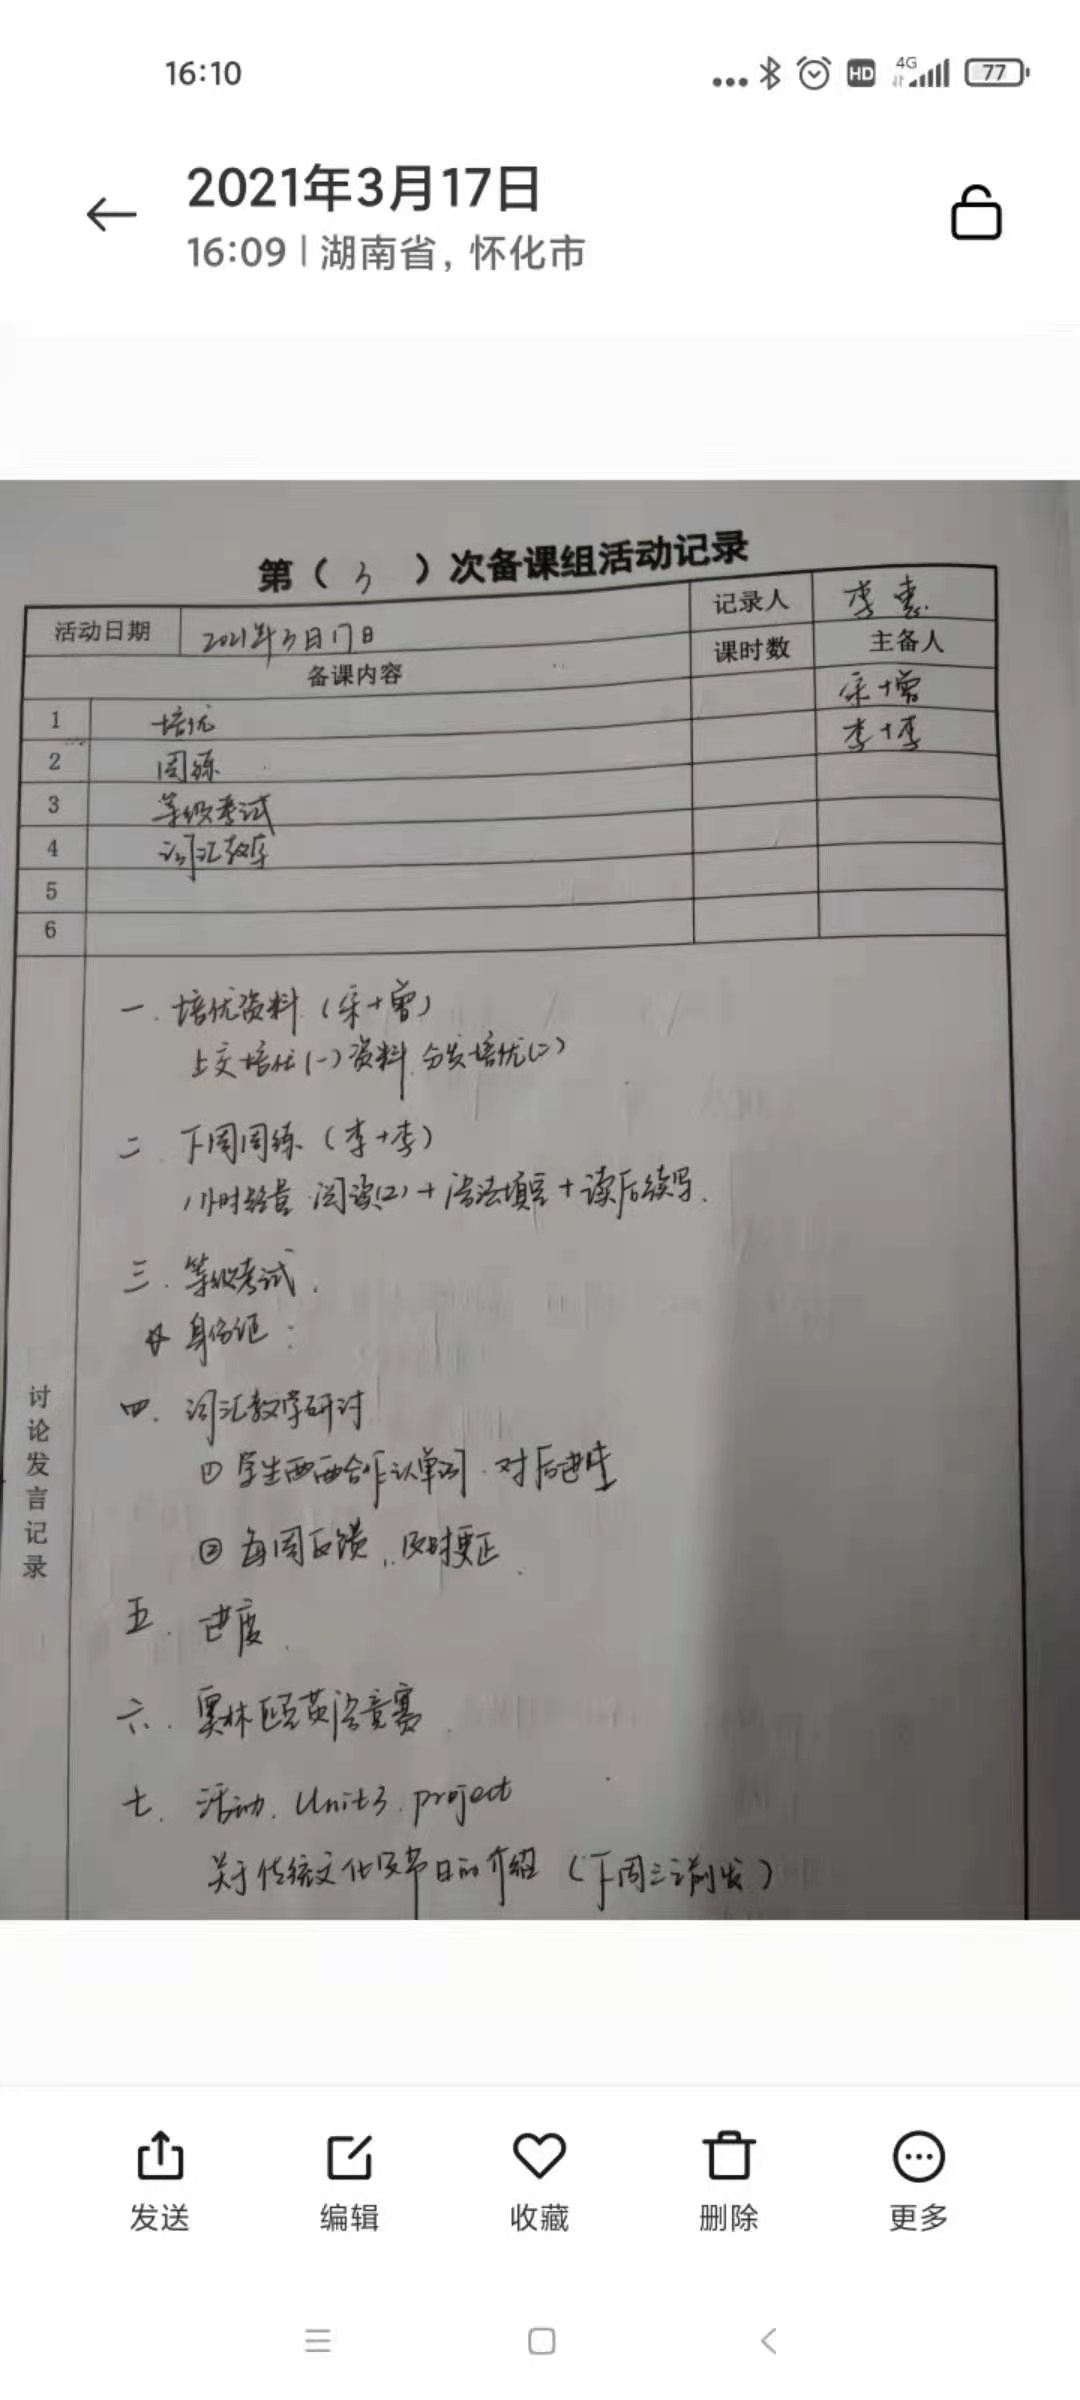 16:10
HD 4G 77
2021年3月17日
16:09 | 湖南省，怀化市
第（ 3 ）次备课组活动记录
活动日期 2021年3月17日 记录人 李惠
备课内容 课时数 主备人
1 培优 宋+曾
2 周练 李+李
3 等级考试
4 词汇教学
5
6
讨论发言记录
一. 培优资料（宋+曾）
上交培优(一)资料 分发培优(二)
二. 下周周练（李+李）
1小时 阅读(2)+语法填空+读后续写.
三. 等级考试.
身份证:
四. 词汇教学研讨
① 学生两两合作认单词. 对后进生
② 每周反馈, 及时更正.
五. 进度.
六. 奥林匹克英语竞赛.
七. 活动. Unit3. project
关于传统文化及节日的介绍（下周三之前发）
发送 编辑 收藏 删除 更多